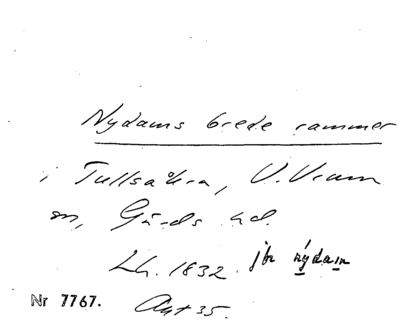 Nydams brede rammer
i Tullsåkra, V. Vram
sn, Gärds hd.
Lh. 1832. jbr nýdam
Nr 7767. Avst 35.